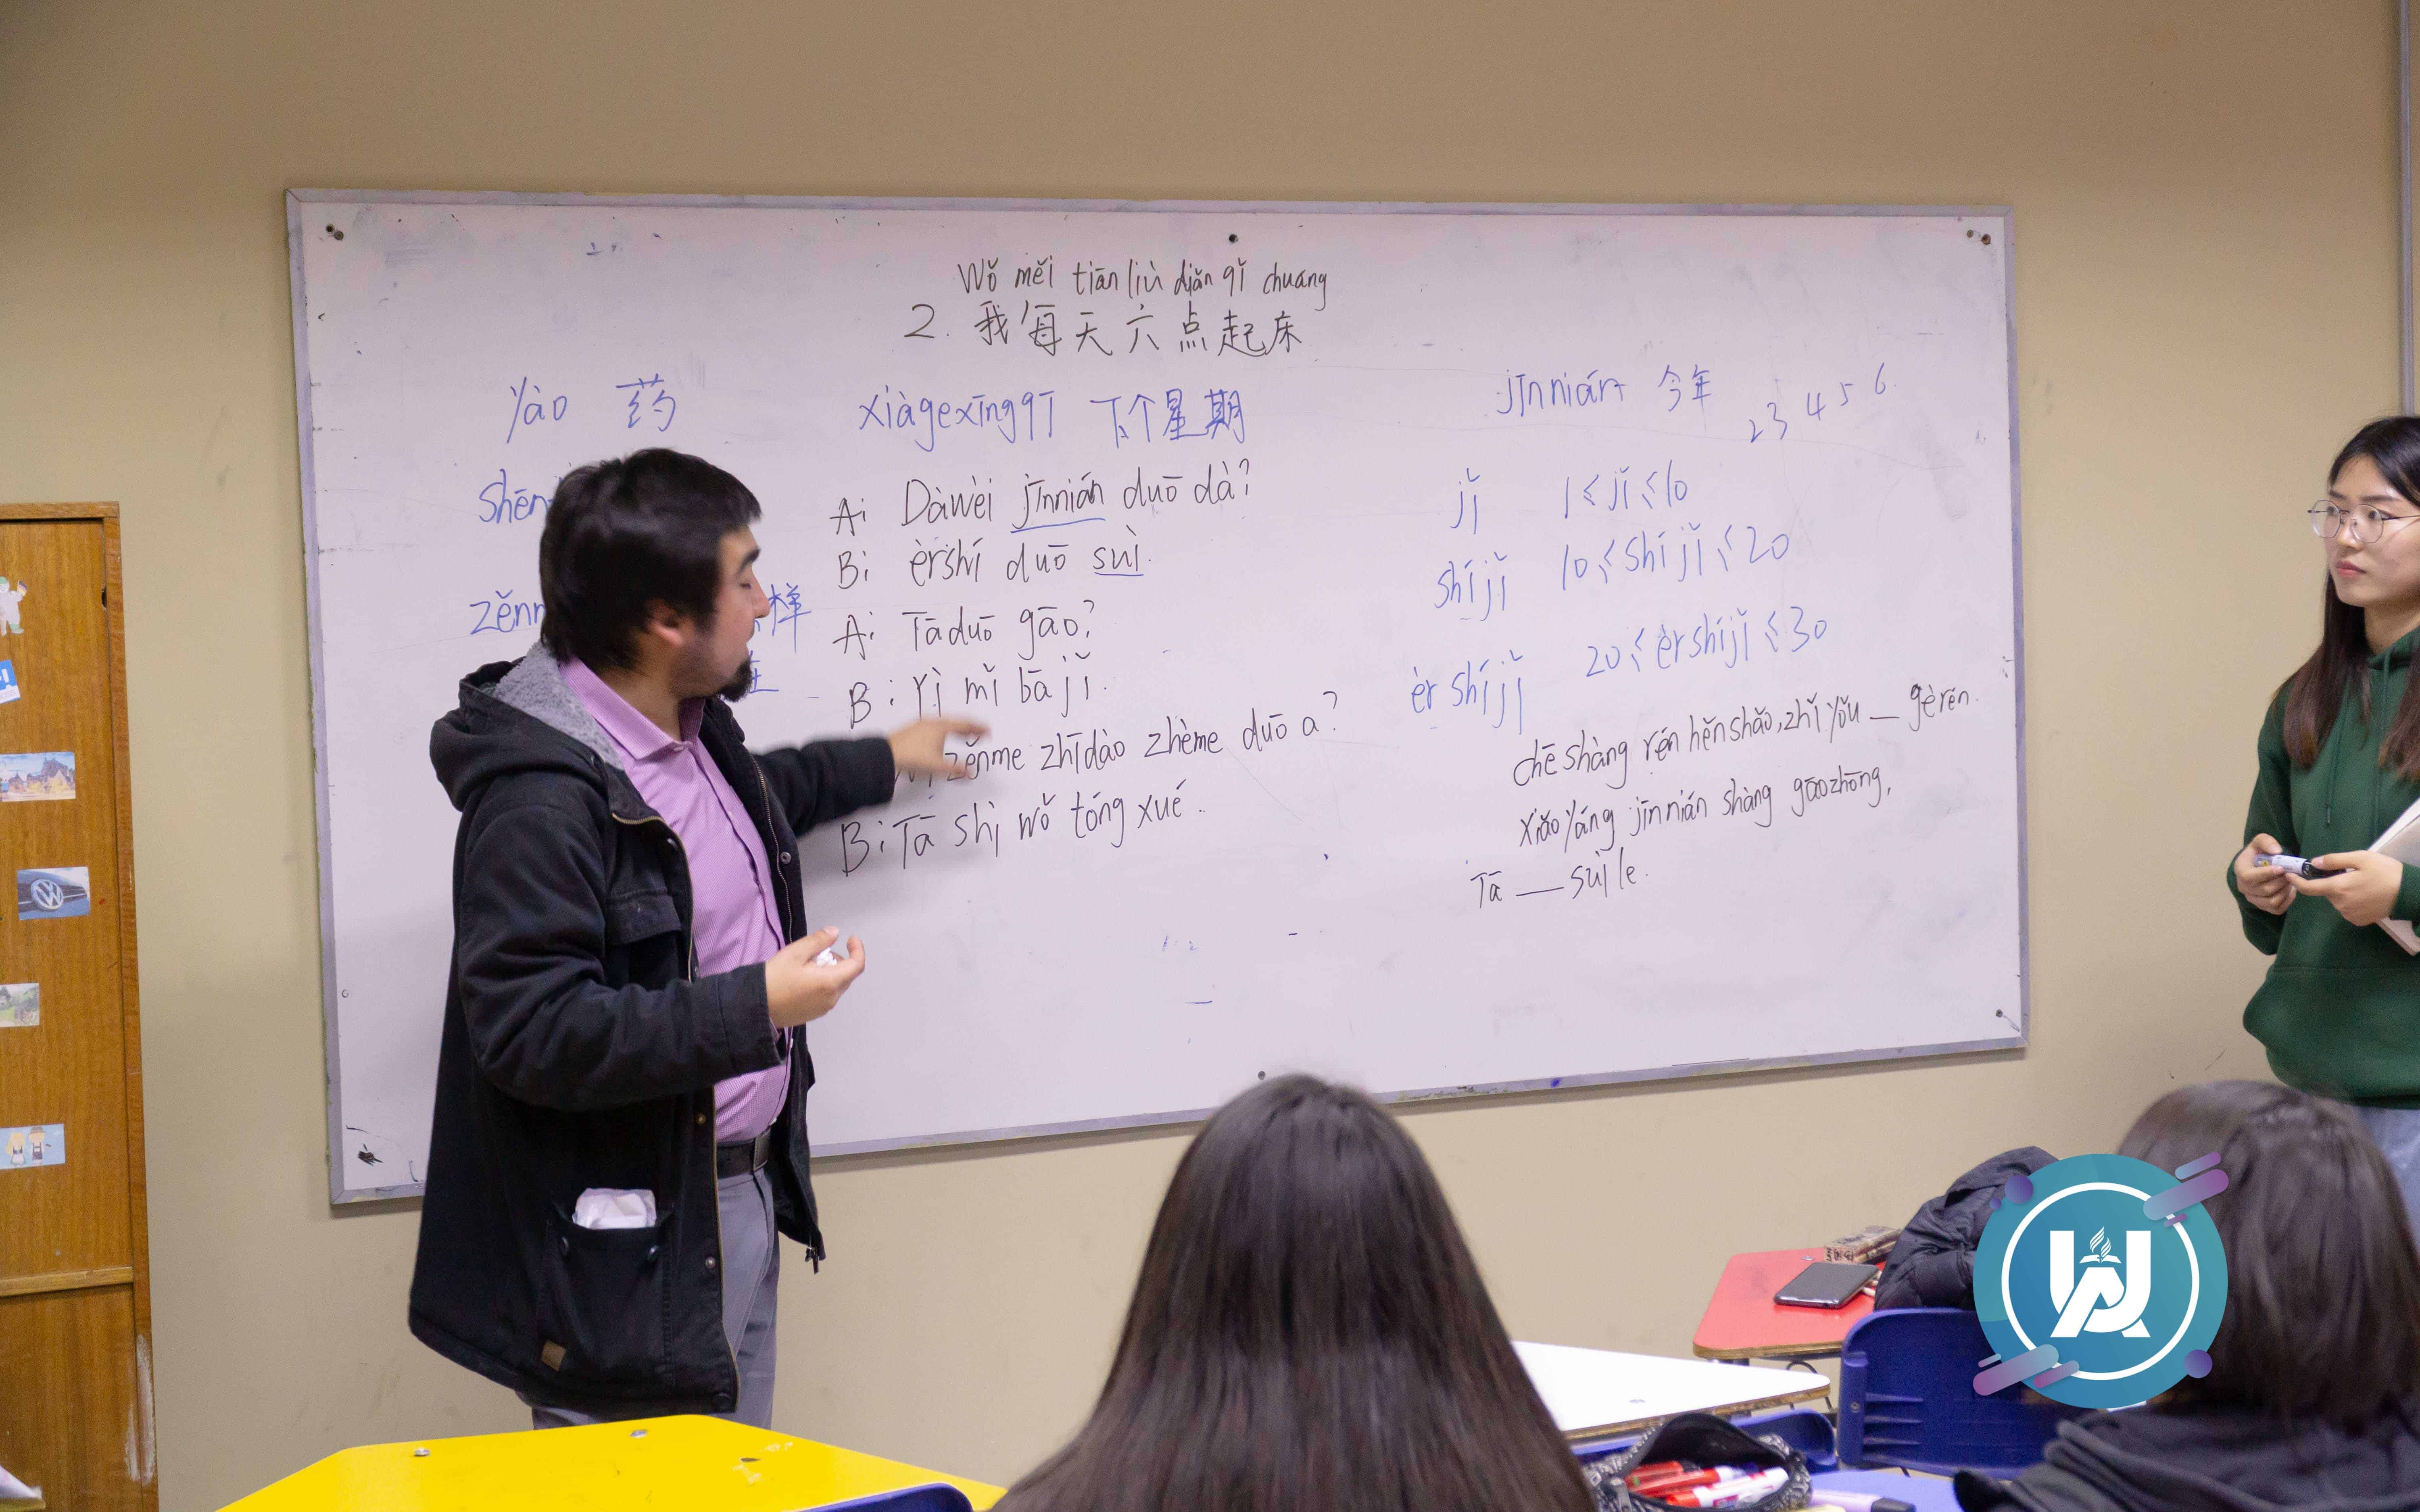 Wǒ měi tiān liù diǎn qǐ chuáng
2. 我每天六点起床
yào 药
xiàgexīngqī 下个星期
jīnnián 今年
2 3 4 5 6
A: Dàwèi jīnnián duō dà?
B: èrshí duō suì.
A: Tā duō gāo?
B: Yì mǐ bā jǐ.
zěnme zhīdào zhème duō a?
B: Tā shì wǒ tóng xué.
jǐ 1≤jǐ≤10
shíjǐ 10≤shíjǐ≤20
èrshíjǐ 20≤èrshíjǐ≤30
chē shàng rén hěn shǎo, zhǐ yǒu __ gè rén.
xiǎo Yáng jīnnián shàng gāozhōng,
Tā __ suì le.
样